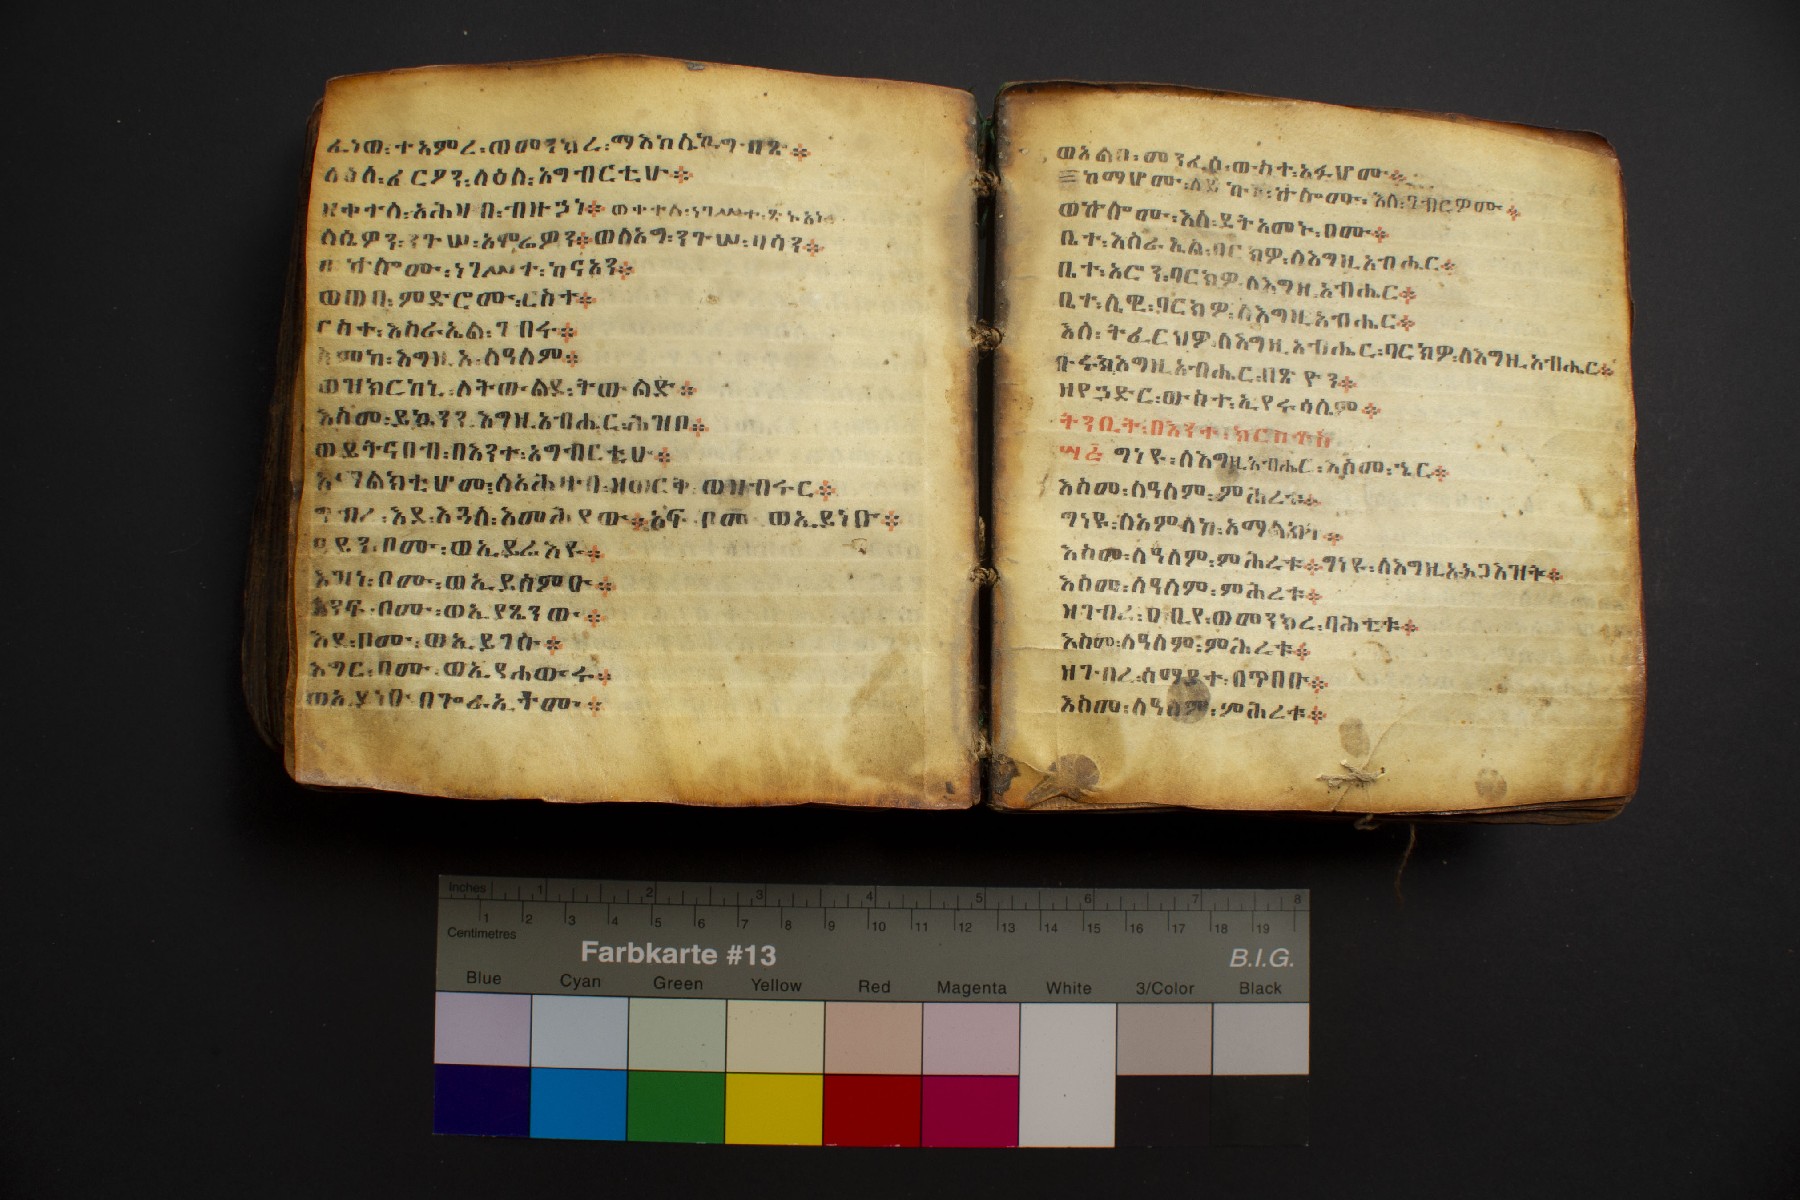 ፈነወ፡ተአምረ፡ወመንክረ፡ማእከሌኪ፡ግብጽ፨
ላዕለ፡ፈርዖን፡ላዕለ፡አግብርቲሁ፨
ዘቀተለ፡አሕዛበ፡ብዙኃነ፨ወቀተለ፡ነገሥተ፡ጽኑዓነ
ለሴዎን፡ንጉሠ፡አሞሬዎን፨ወለአግ፡ንጉሠ፡ባሳን፨
ወኵሎሙ፡ነገሥተ፡ከናአን፨
ወጠበ፡ምድሮሙ፡ርስተ፨
ርስተ፡እስራኤል፡ገብሩ፨
ስምከ፡እግዚኦ፡ለዓለም፨
ወዝክርከኒ፡ለትውልደ፡ትውልድ፨
እስመ፡ይኴንን፡እግዚአብሔር፡ሕዝቦ፨
ወይትናበብ፡በእንተ፡አግብርቲሁ፨
አማልክቲሆሙ፡ለአሕዛብ፡ዘወርቅ፡ወዘብሩር፨
ግብረ፡እደ፡እጓለ፡እመሕያው፨አፍ፡ቦሙ፡ወኢይነቡ፨
ዐይን፡ቦሙ፡ወኢይሬእዩ፨
እዝነ፡ቦሙ፡ወኢይሰምዑ፨
አንፍ፡ቦሙ፡ወኢያጼንው፨
እደ፡ቦሙ፡ወኢይገሱ፨
እግር፡ቦሙ፡ወኢየሐውሩ፨
ወኢይነቡ፡በጕራኢቶሙ፨
ወአልቦ፡መንፈስ፡ውስተ፡አፉሆሙ፨
ከማሆሙ፡ለይኩኑ፡ኵሎሙ፡እለ፡ገብርዎሙ፨
ወኵሎሙ፡እለ፡ይትአመኑ፡ቦሙ፨
ቤተ፡እስራኤል፡ባርክዎ፡ለእግዚአብሔር፨
ቤተ፡አሮን፡ባርክዎ፡ለእግዚአብሔር፨
ቤተ፡ሌዊ፡ባርክዎ፡ለእግዚአብሔር፨
እለ፡ትፈርህዎ፡ለእግዚአብሔር፡ባርክዎ፡ለእግዚአብሔር፨
ቡሩክ፡እግዚአብሔር፡በጽዮን፨
ዘየኃድር፡ውስተ፡ኢየሩሳሌም፨
ትንቢት፡በእንተ፡ክርስቶስ
፻፴፭ ግነዩ፡ለእግዚአብሔር፡እስመ፡ኄር፨
እስመ፡ለዓለም፡ምሕረቱ፨
ግነዩ፡ለአምላከ፡አማልክት፨
እስመ፡ለዓለም፡ምሕረቱ፨ግነዩ፡ለእግዚአ፡አጋእዝት፨
እስመ፡ለዓለም፡ምሕረቱ፨
ዘገብረ፡ዐቢየ፡ወመንክረ፡ባሕቲቱ፨
እስመ፡ለዓለም፡ምሕረቱ፨
ዘገብረ፡ሰማያተ፡በጥበቡ፨
እስመ፡ለዓለም፡ምሕረቱ፨
Inches 1 2 3 4 5 6 7 8
1 2 3 4 5 6 7 8 9 10 11 12 13 14 15 16 17 18 19
Centimetres
Farbkarte #13
B.I.G.
Blue Cyan Green Yellow Red Magenta White 3/Color Black